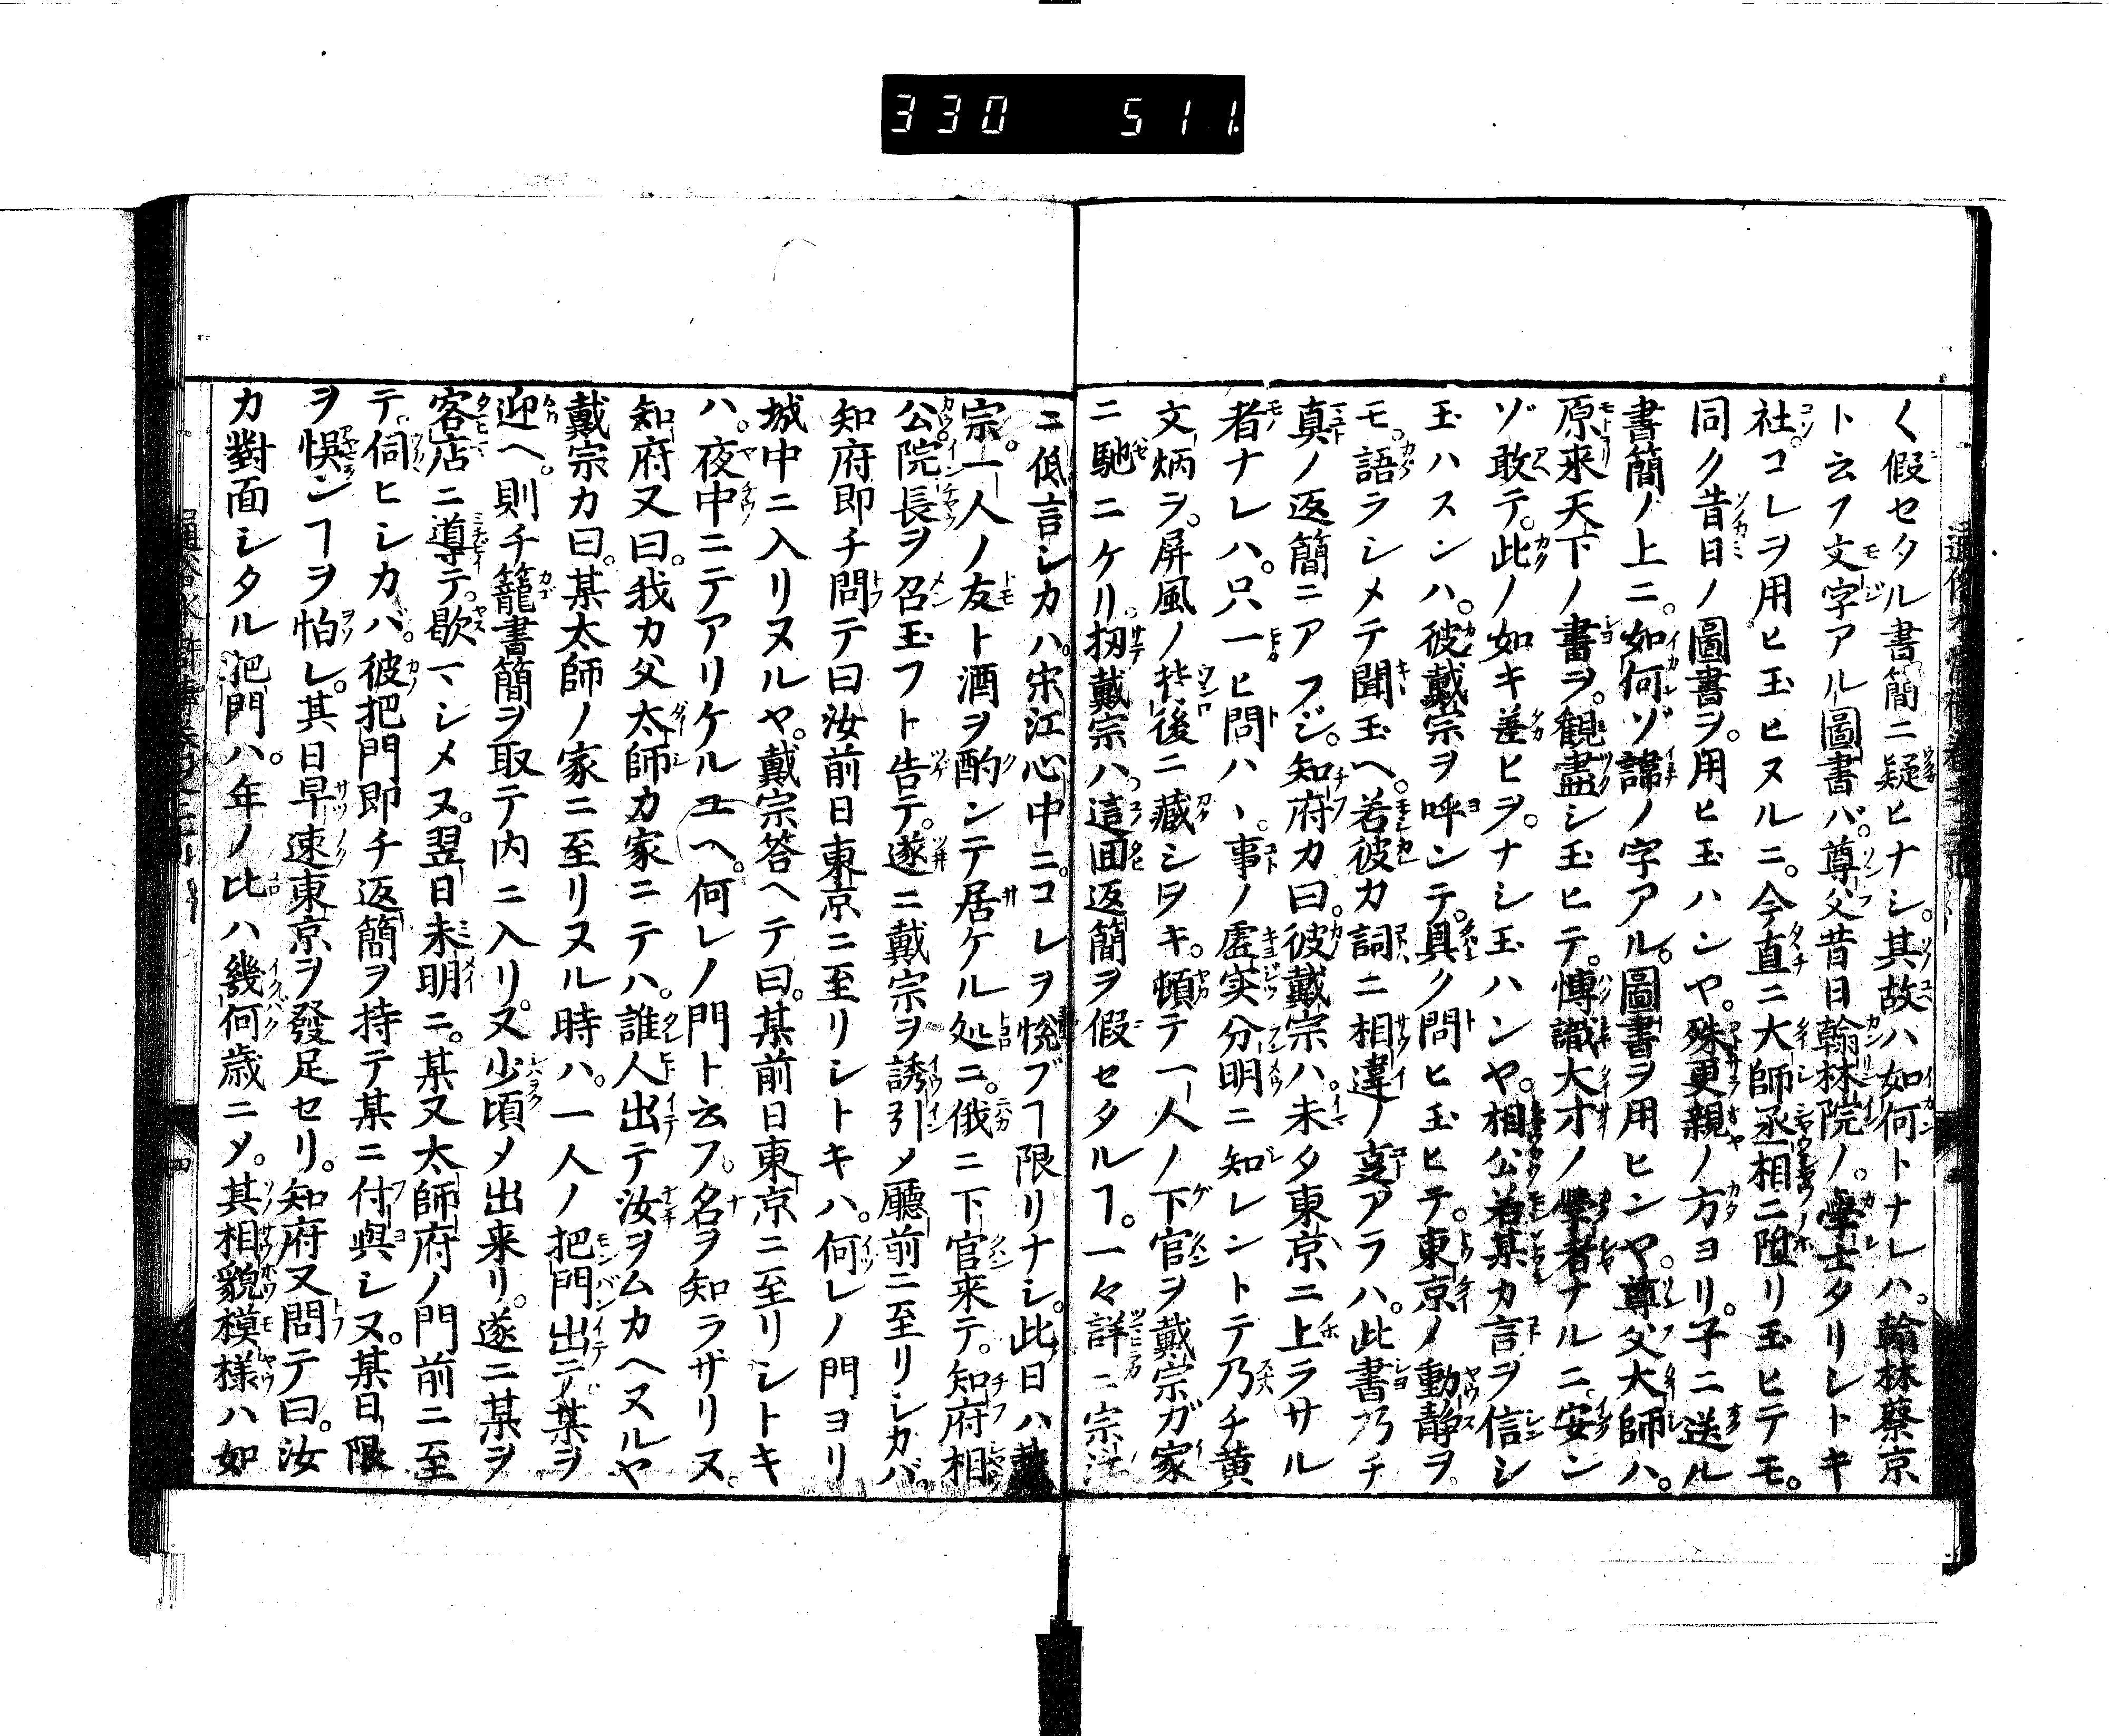 330 511.
ク假セタル書簡ニ疑ヒナシ。其故ハ如何トナレハ。翰林蔡京
ト云フ文字アル圖書バ。尊父昔日翰林院ノ。學士タリシトキ
社。コレヲ用ヒ玉ヒヌルニ。今直ニ大師丞相ニ陞リ玉ヒテモ。
同ク昔日ノ圖書ヲ。用ヒ玉ハンヤ。殊更親ノ方ヨリ。子ニ送ル
書簡ノ上ニ。如何ゾ諱ノ字アル。圖書ヲ用ヒンヤ。尊父大師ハ。
原来天下ノ書ヲ。觀盡シ玉ヒテ。博識大才ノ學者ナルニ。安ン
ゾ敢テ。此ノ如キ差ヒヲ。ナシ玉ハンヤ。相公若某カ言ヲ信シ
玉ハスンハ。彼戴宗ヲ呼ンテ。具ク問ヒ玉ヒテ。東京ノ動静ヲ
モ。語ラシメテ聞玉ヘ。若彼カ詞ニ相違ノ叓アラハ。此書乃チ
真ノ返簡ニアラジ。知府カ曰。彼戴宗ハ。未タ東京ニ上ラサル
者ナレハ。只一ヒ問ハヽ。事ノ虚実分明ニ知レントテ乃チ黄
文炳ヲ。屏風ノ背後ニ藏シヲキ。頓テ一人ノ下官ヲ戴宗ガ家
ニ馳ニケリ。扨戴宗ハ。這囬返簡ヲ假セタルヿ。一々詳ニ宗江
ニ低言シカハ。宋江心中ニ。コレヲ悦ブヿ限リナシ。此日ハ戴
宗。一人ノ友ト酒ヲ酌ンテ居ケル処ニ。俄ニ下官来テ。知府相
公院長ヲ召玉フト告テ。遂ニ戴宗ヲ誘引メ廳前ニ至リシカバ。
知府即チ問テ曰汝前日東京ニ至リシトキハ。何レノ門ヨリ
城中ニ入リヌルヤ。戴宗答ヘテ曰。某前日東京ニ至リシトキ
ハ。夜中ニテアリケルユヘ。何レノ門ト云フ。名ヲ知ラザリヌ。
知府又曰。我カ父太師カ家ニテハ。誰人出テ汝ヲムカヘヌルヤ
戴宗カ曰。某太師ノ家ニ至リヌル時ハ。一人ノ把門出テ某ヲ
迎ヘ。則チ籠書簡ヲ取テ内ニ入リ。又少頃メ出来リ。遂ニ某ヲ
客店ニ導テ。歇マシメヌ。翌日未明ニ。某又太師府ノ門前ニ至
テ。伺ヒシカバ。彼把門即チ返簡ヲ持テ某ニ付與シヌ。某日限
ヲ悞ンヿヲ怕レ。其日早速東京ヲ發足セリ。知府又問テ曰。汝
カ對面シタル把門ハ。年ノ比ハ幾何歳ニメ。其相貌模様ハ如